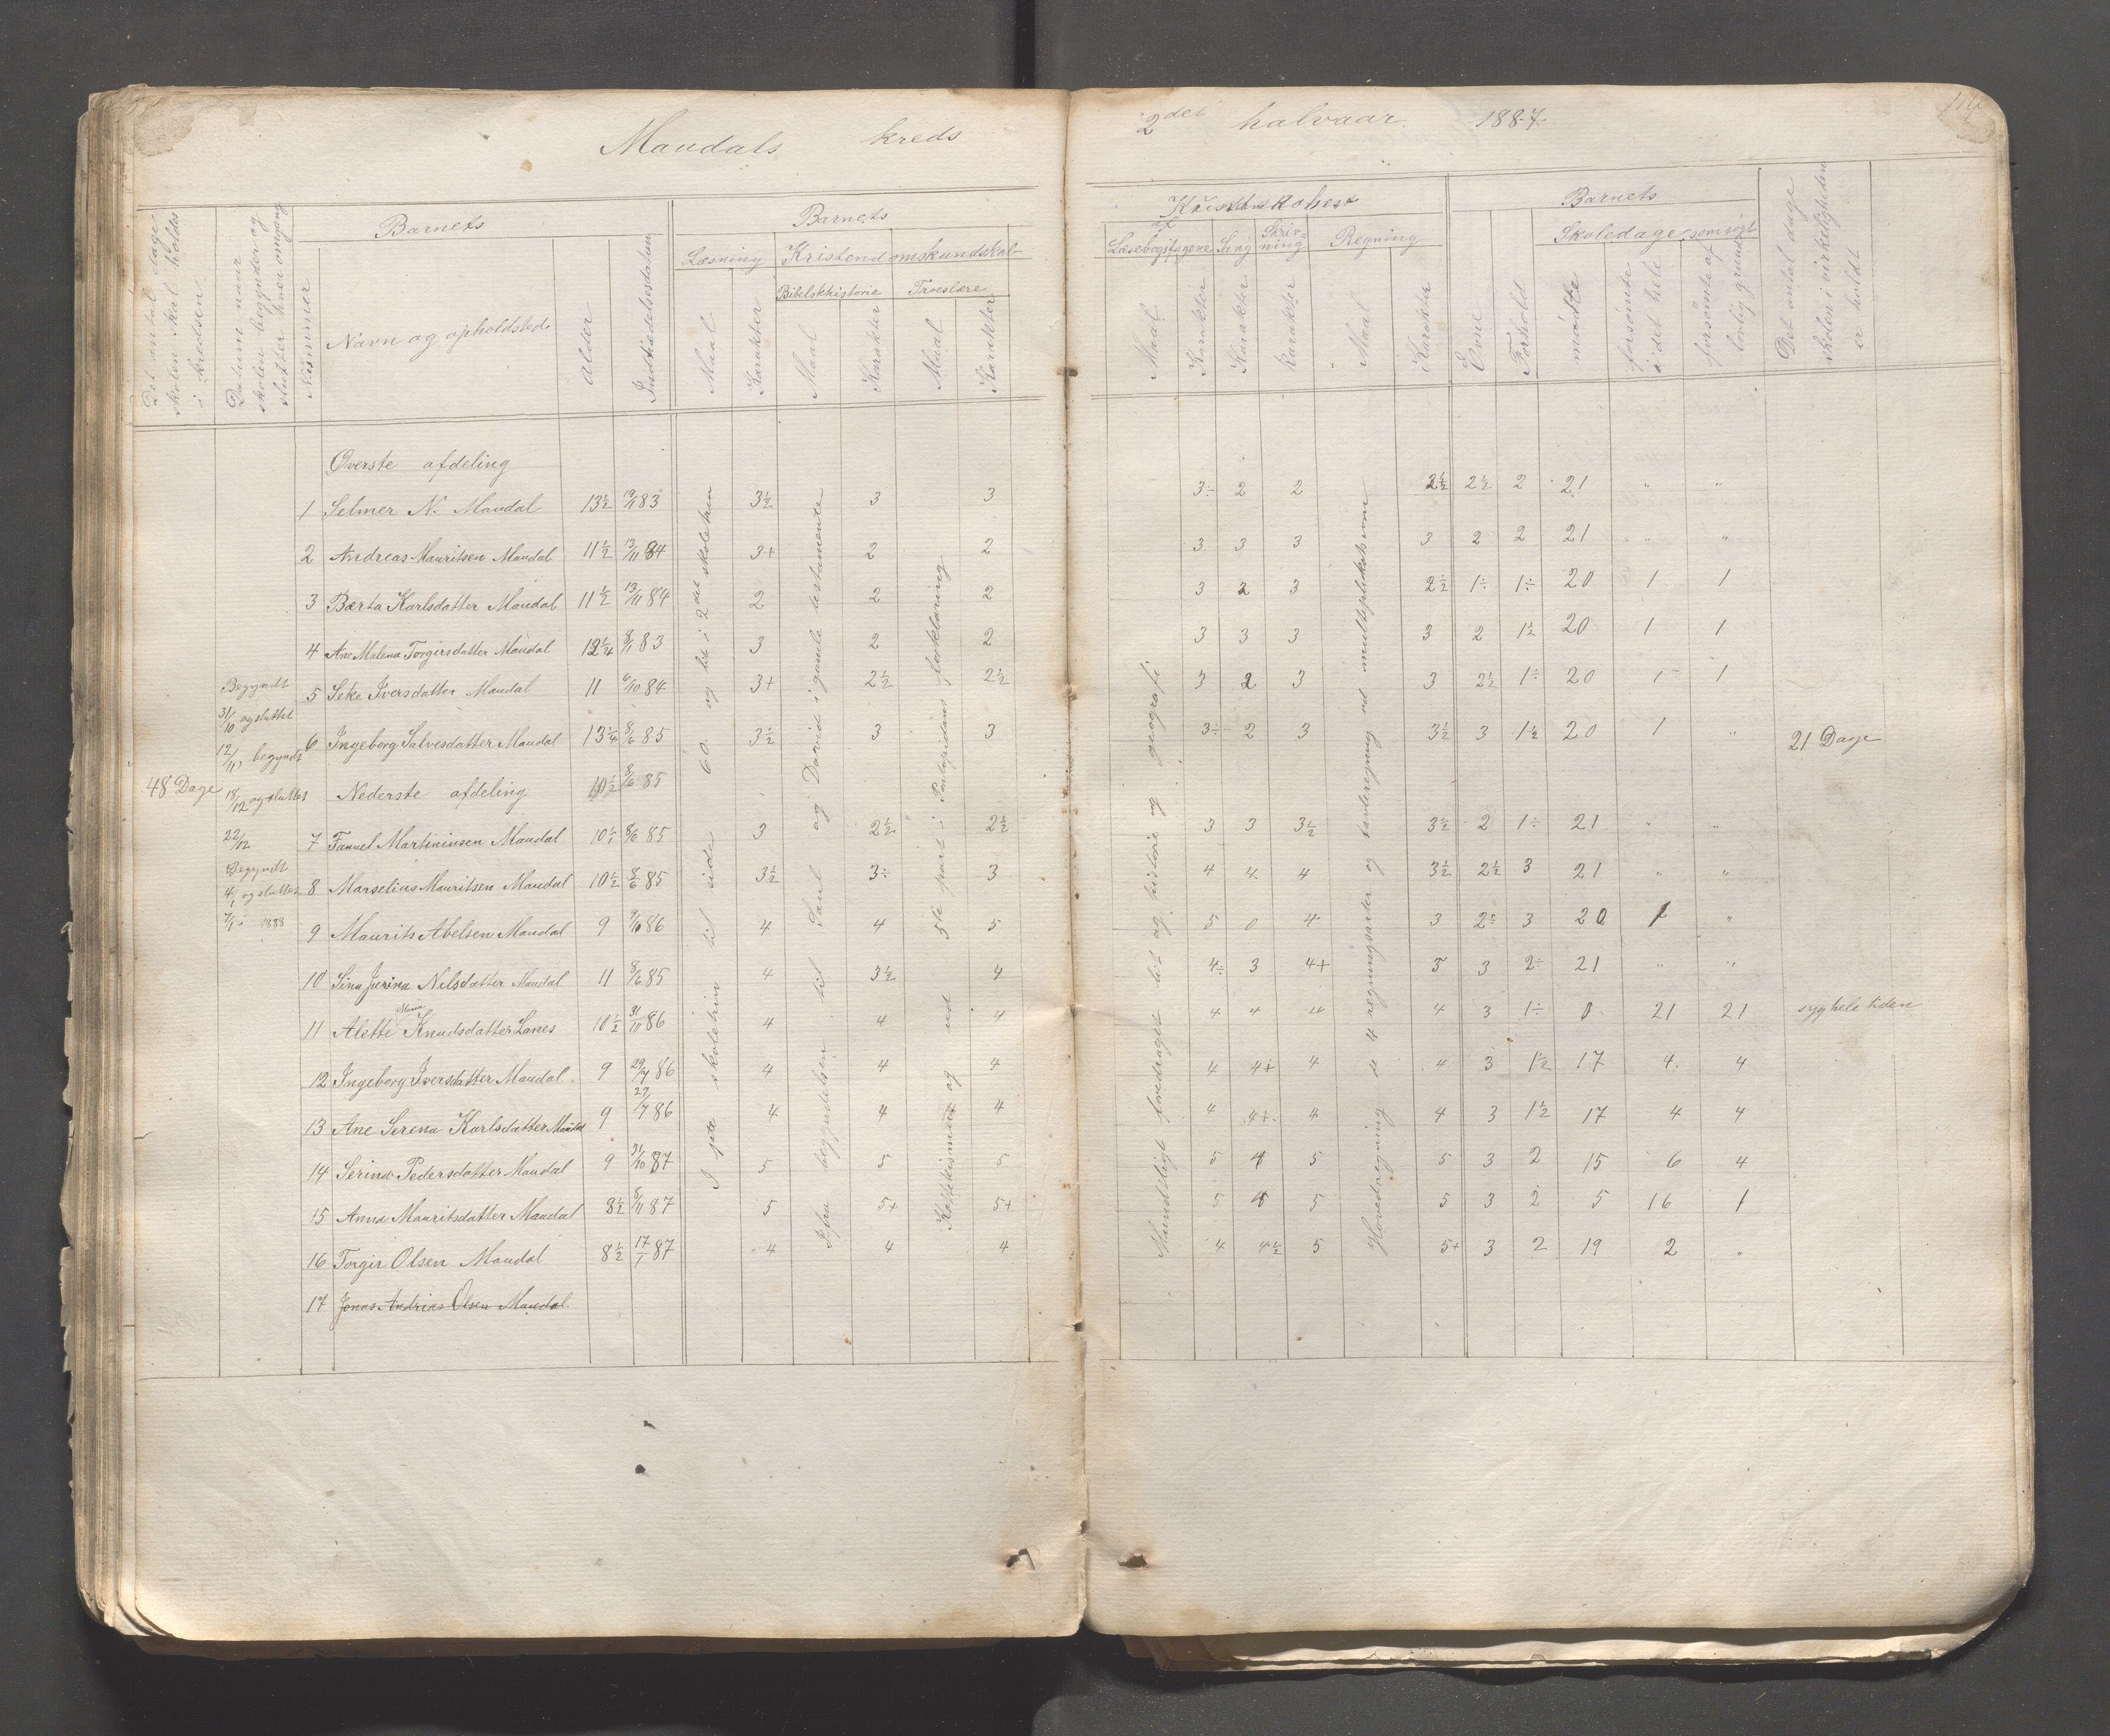 Maudals kreds
2det halvaar 1887.
Det antal dage skolen skal holdes i kredsen
Datum naar skolen begynder og slutter hver omgang
Nummer
Barnets
Navn og opholdsted
Alder
Indtrædelsesdatum
Barnets
Læsning
Maal
Karakter
Kristendomskundskab
Bibelskhistorie
Maal
Karakter
Troeslære
Maal
Karakter
Kundskaber
af
Læsebogsfagene
Maal
Karakter
Sang
Karakter
Skrivning
Karakter
Regning
Maal
Karakter
Barnets
Evne
Forhold
Skoledage
mødte
forsømte i det hele
forsømte af lovlig grund
Det antal dage skolen i virkeligheden er holdt
48 Dage
Begyndt
31/10 og sluttet
12/11, begyndt
18/12 og sluttet
22/12
Begyndt
4/1 og sluttet
7/1 i 1888
Øverste afdeling
1 Selmer N. Maudal 13½ 19/1 83 3½ 3 3 3÷ 2 2 2½ 2½ 2 21 " "
2 Andreas Mauritsen Maudal 11½ 13/11 84 3+ 2 2 3 3 3 3 2 2 21 " "
3 Bærta Karlsdatter Maudal 11½ 13/11 84 2 2 2 3 2 3 2½ 1÷ 1÷ 20 1 1
4 Ane Malena Torgirsdatter Maudal 12¼ 8/1 83 3 2 2 3 3 3 3 2 1½ 20 1 1
5 Seke Iversdatter Maudal 11 6/10 84 3+ 2½ 2½ 3 2 3 3 2½ 1÷ 20 1 1
6 Ingeborg Salvesdatter Maudal 13¼ 8/6 85 3½ 3 3 3÷ 2 3 3½ 3 1½ 20 1 " 21 Dage
Nederste afdeling 10½ 8/6 85
7 Fanuel Martiniusen Maudal 10½ 8/6 85 3 2½ 2½ 3 3 3½ 3½ 2 1÷ 21 " "
8 Marselius Mauritsen Maudal 10½ 8/6 85 3½ 3÷ 3 4 4 4 3½ 2½ 3 21 " "
9 Maurits Abelsen Maudal 9 9/10 86 4 4 5 5 0 4 3 2÷ 3 20 1 "
10 Sina Jurina Nilsdatter Maudal 11 8/6 85 4 3½ 4 4÷ 3 4+ 5 3 2÷ 21 " "
11 Alette Maria Knudsdatter Lanes 10½ 31/10 86 4 4 4 4 4 4 4 3 1÷ 0 21 21 syg hele tiden
12 Ingeborg Iversdatter Maudal 9 29/7 86 4 4 4 4 4+ 4 4 3 1½ 17 4 4
13 Ane Serena Karlsdatter Maudal 9 29/7 86 4 4 4 4 4+ 4 4 3 1½ 17 4 4
14 Serina Pedersdatter Maudal 9 31/10 87 5 5 5 5 4 5 5 3 2 15 6 4
15 Anna Mauritsdatter Maudal 8½ 8/11 87 5 5+ 5+ 5 4 5 5 3 2 5 16 1
16 Torgir Olsen Maudal 8½ 17/1 87 4 4 4 4 4½ 5 5+ 3 2 19 2 "
17 Jonas Andrias Olsen Maudal
I 1ste skoletrin til side 60 og lit i 2det skoletrin
Fra begyndelsen til Saul og David i gamle testamente
Katekismus og ud 5te part i Pontopidans forklaring
Mundtligt foredraget lit af historie og geografi
Hovedregning de 4 regningsarter og tavleregning ud multiplikationen